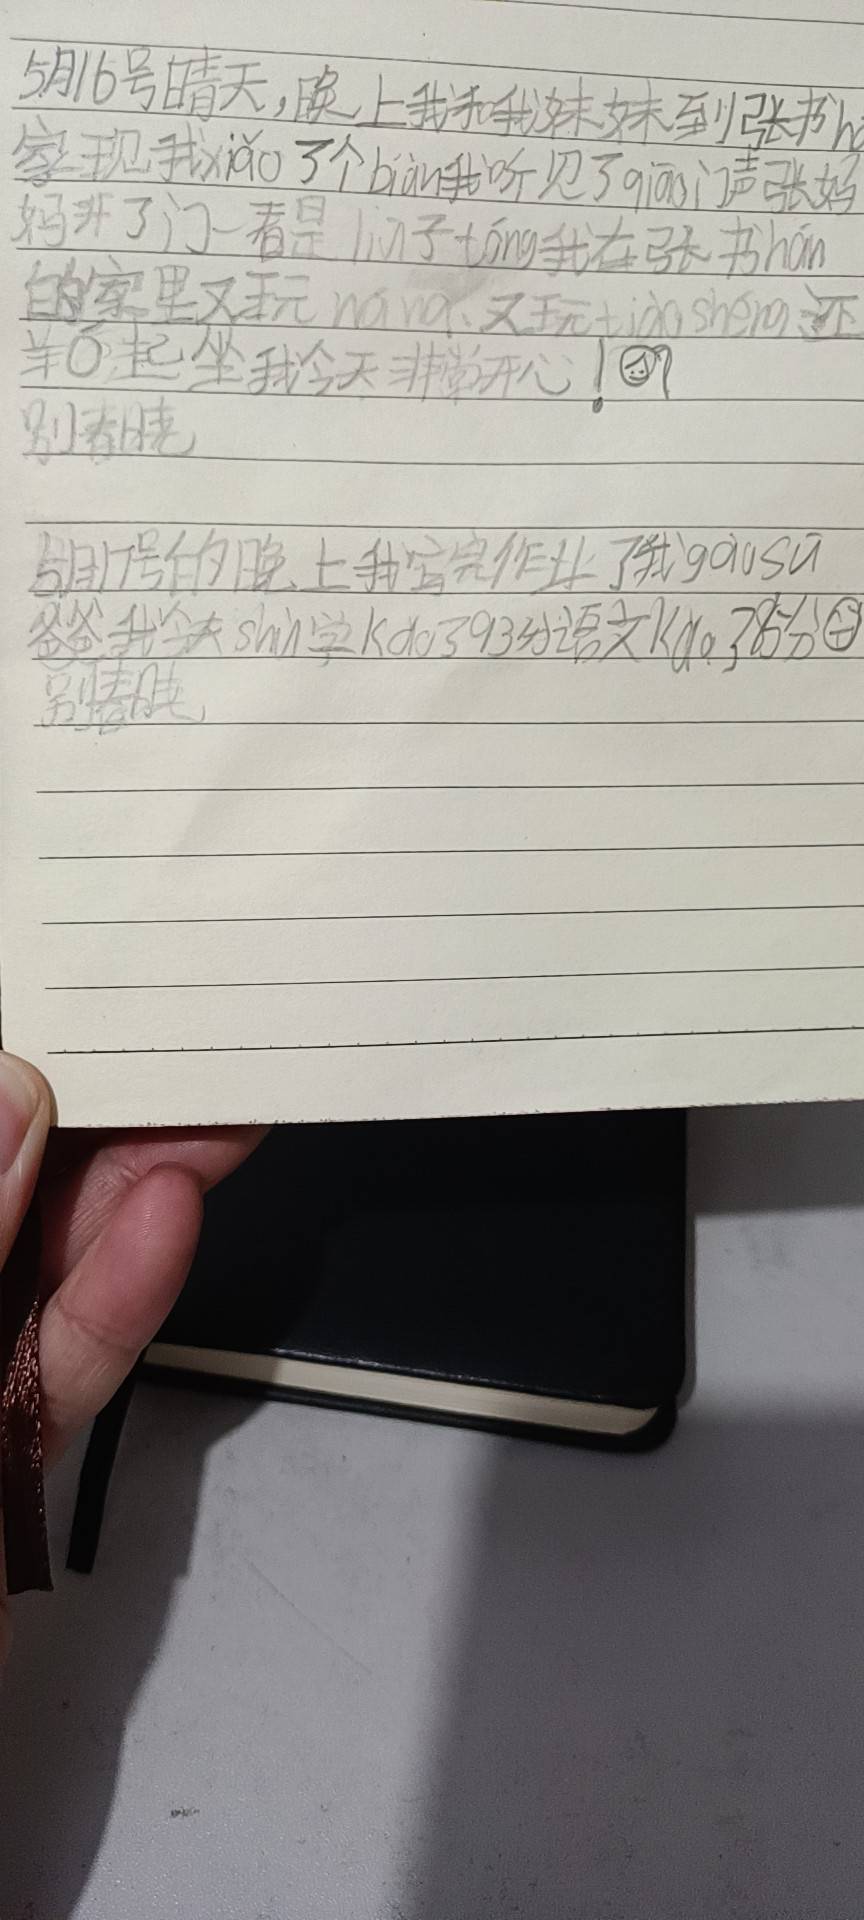 5月16号晴天,晚上我和我妹妹到张书h
家玩现我xiǎo了个biàn我听见了qiāo门声张妈
妈开了门一看是lín子tóng我在张书hán
的家里又玩 又玩tiàoshéng还
起坐我今天非常开心!
别春晓
5月17号的晚上我写完作业了我gàosù
爸爸我今天shù学kǎo了93分语文kǎo了85分
别春晓